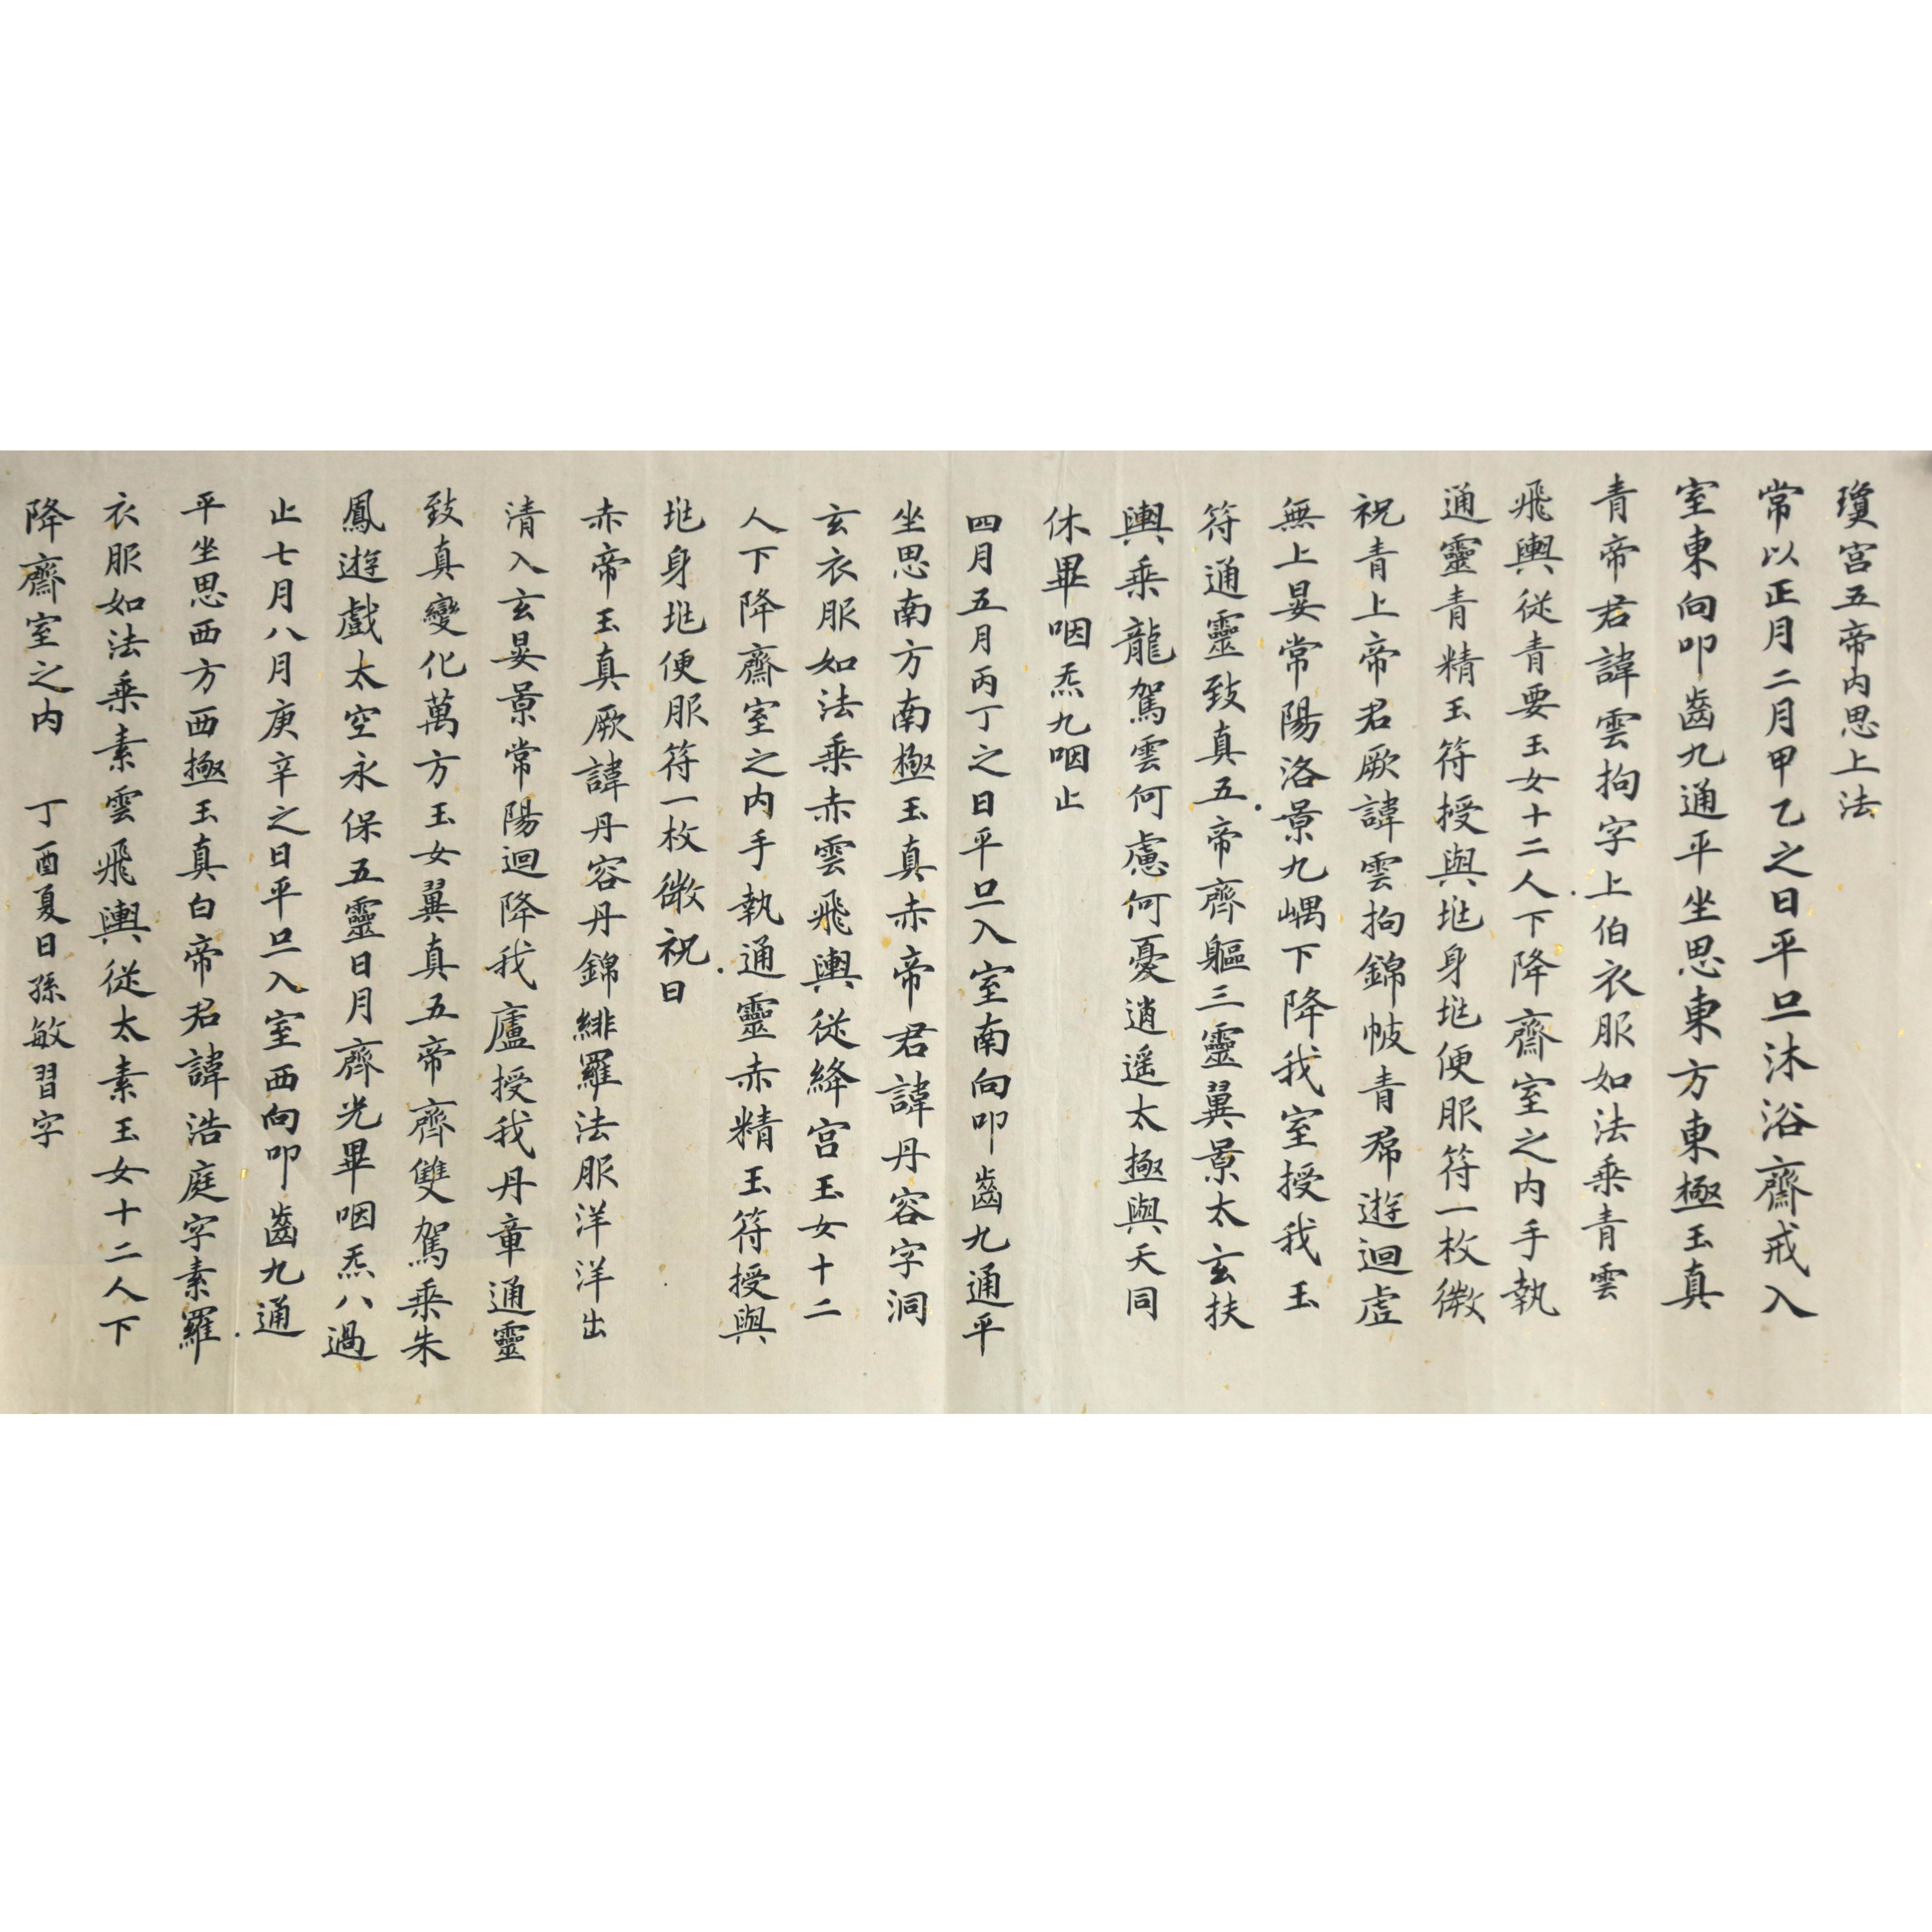 瓊宮五帝內思上法
常以正月二月甲乙之日平旦沐浴齋戒入
室東向叩齒九通平坐思東方東極玉真
青帝君諱雲拘字上伯衣服如法乘青雲
飛輿從青要玉女十二人下降齋室之內手執
通靈青精玉符授與兆身兆便服符一枚微
祝青上帝君厥諱雲拘錦帔青帬遊迴虛
無上晏常陽洛景九嵎下降我室授我玉
符通靈致真五帝齊軀三靈翼景太玄扶
輿乘龍駕雲何慮何憂逍遙太極與天同
休畢咽炁九咽止
四月五月丙丁之日平旦入室南向叩齒九通平
坐思南方南極玉真赤帝君諱丹容字洞
玄衣服如法乘赤雲飛輿從絳宮玉女十二
人下降齋室之內手執通靈赤精玉符授與
兆身兆便服符一枚微祝曰
赤帝玉真厥諱丹容丹錦緋羅法服洋洋出
清入玄晏景常陽迴降我廬授我丹章通靈
致真變化萬方玉女翼真五帝齊雙駕乘朱
鳳遊戲太空永保五靈日月齊光畢咽炁八過
止七月八月庚辛之日平旦入室西向叩齒九通
平坐思西方西極玉真白帝君諱浩庭字素羅
衣服如法乘素雲飛輿從太素玉女十二人下
降齋室之內　丁酉夏日孫敏習字